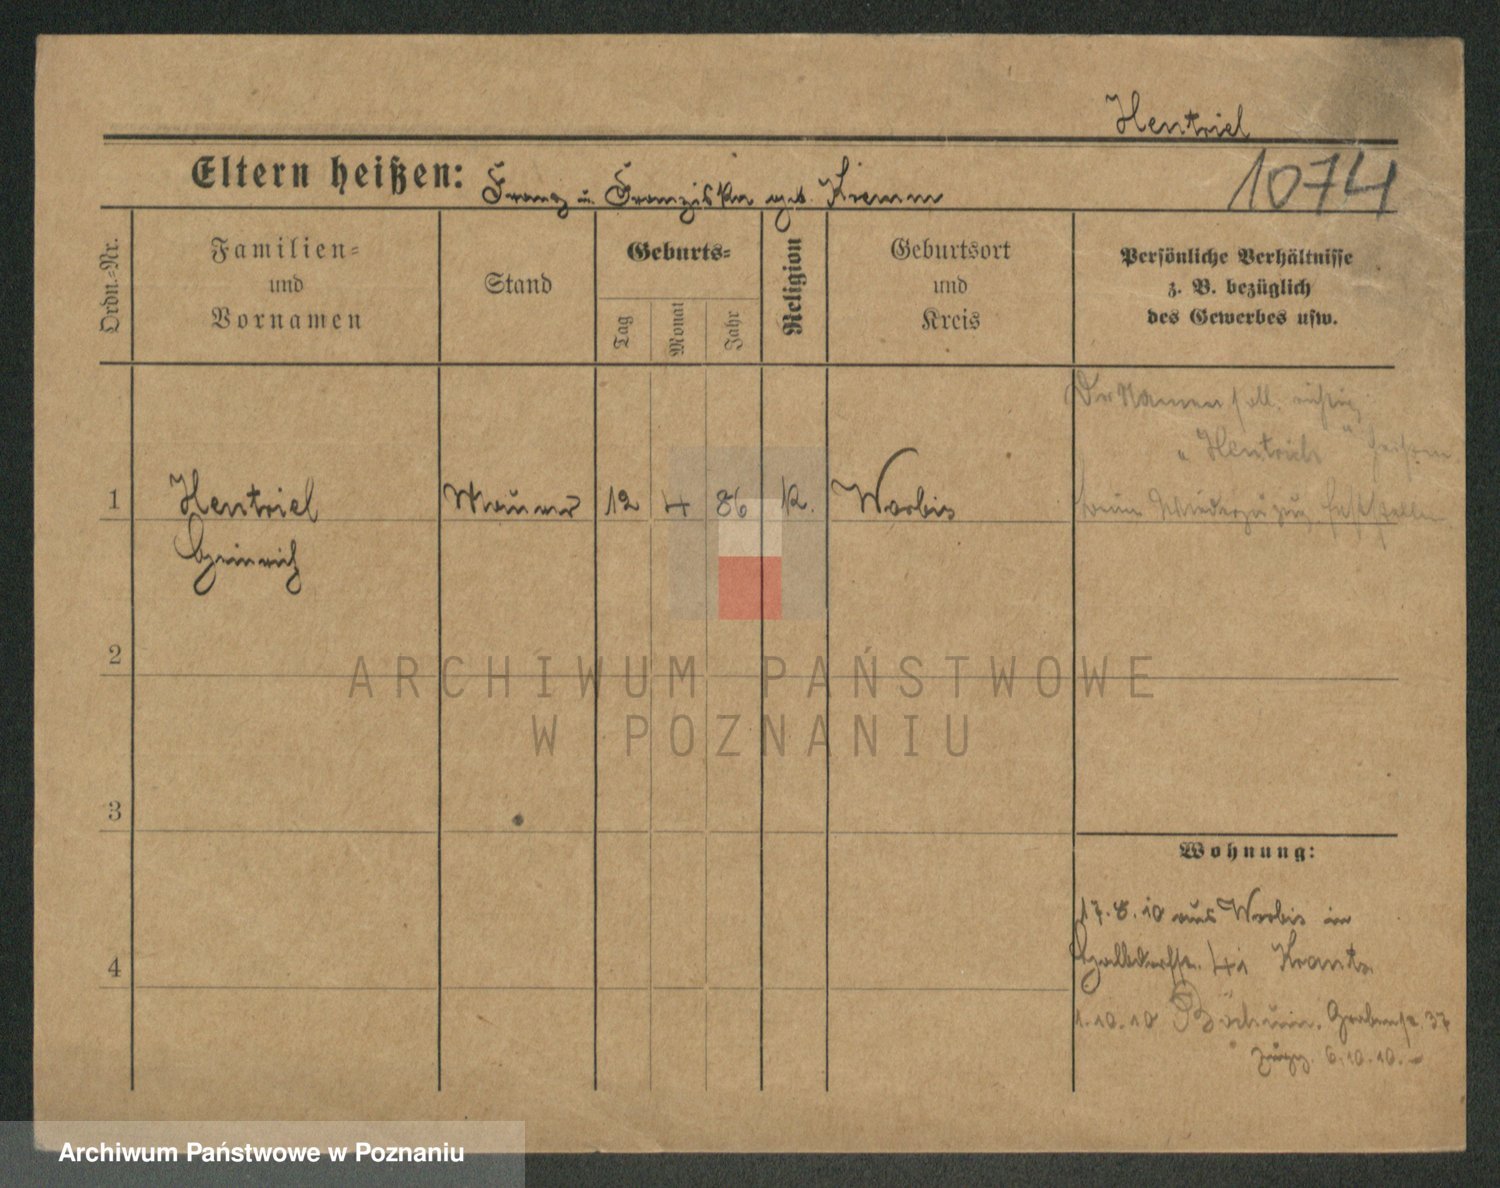 Hentriel
Eltern heißen: Franz u. Franziska geb. Kiemm
1074
Ordn.-Nr.
Familien-
und
Vornamen
Stand
Geburts-
Tag
Monat
Jahr
Religion
Geburtsort
und
Kreis
Persönliche Verhältnisse
z. B. bezüglich
des Gewerbes usw.
Der Namen soll richtig
"Hentrich" heißen
beim Wiederzuzug feststellen
1 Hentriel Maurer 12 4 86 K. Worbis
Heinrich
2
3
4
Wohnung:
17.8.10 aus Worbis in
4i Krantz
1.10.10 Bochum, Grabenstr. 37
6.10.10.
ARCHIWUM PAŃSTWOWE
W POZNANIU
Archiwum Państwowe w Poznaniu